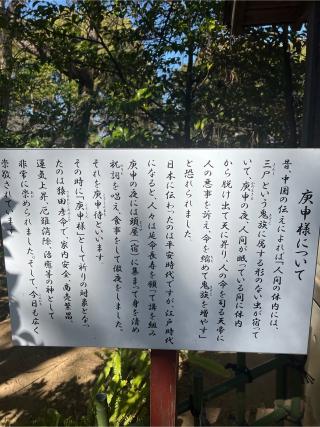 庚申様について
昔、中国の伝えによれば「人間の体内には、
三尸という鬼族に属する形のない虫が宿って
いて、庚申の夜、人間が眠っている間に体内
から脱け出て天に昇り、人の命を司る天帝に
人の悪事を訴え、命を縮めて鬼族を増やす」
と恐れられました。
日本に伝わったのは平安時代ですが、江戸時代
になると、人々は延命長寿を願って講を組み
庚申の夜には頭屋(宿)に集まって身を清め
祝詞を唱え、食事をして徹夜をしました。
それを庚申待といいます。
その時に「庚申様」として祈りの対象となっ
たのは猿田彦命で、家内安全、商売繁盛、
運気上昇、厄難消除、治癒等の神として
非常に崇められました。そして、今日も広く
崇敬されています。